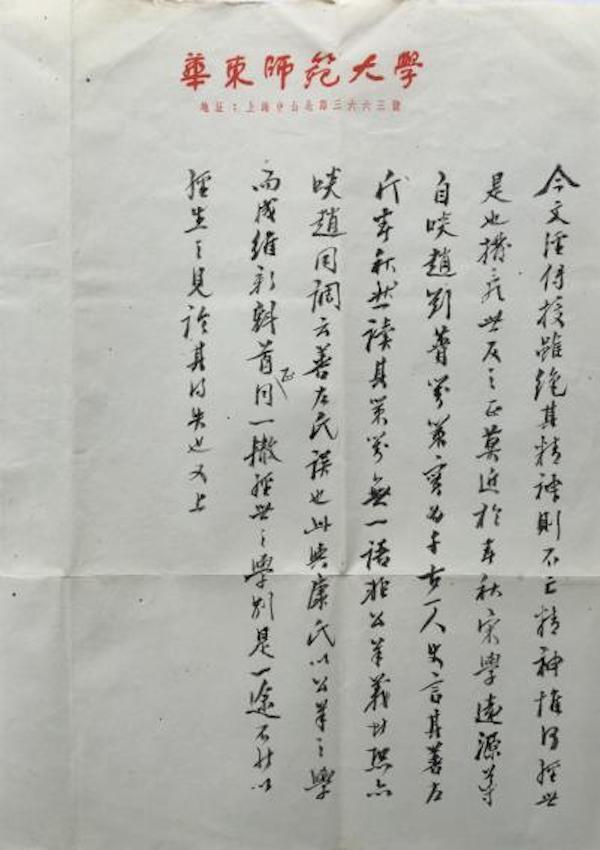 華東師範大學
地址：上海中山北路三六六三號
今文經傳授雖絕其精神則不亡精神惟何經世
是也撥亂世反之正莫近於春秋宋學遠源等
自啖趙劉蕡對策實為千古一人史言其善左
氏春秋然讀其策對無一語非公羊義井與
啖趙同調云善左氏誤也此與康氏以公羊之學
而成維新斠首正同一撤經世之學別是一途不能以
經生之見論其得失也又上